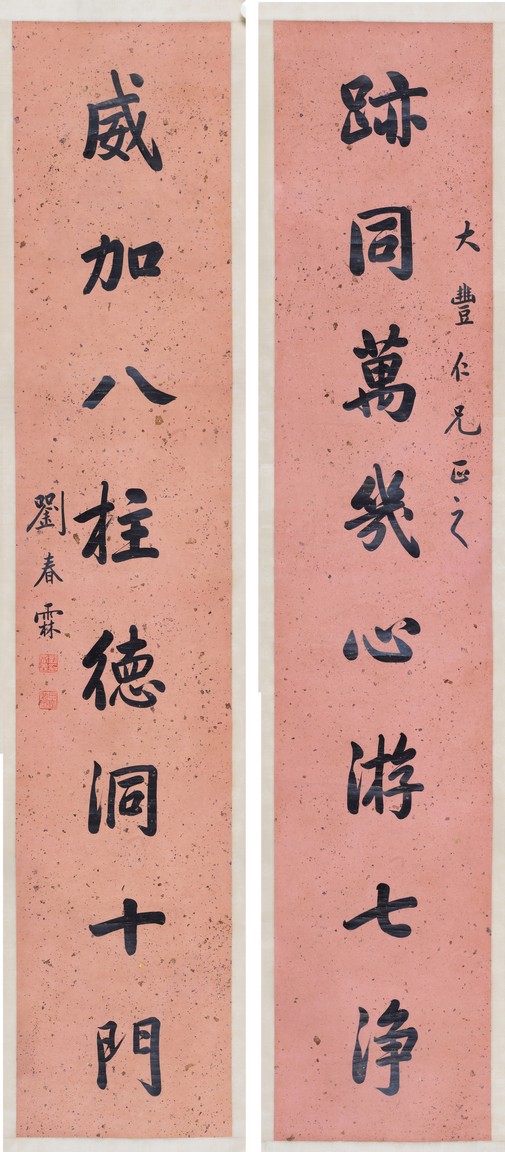 大豐仁兄正之
跡同萬幾心游七淨
威加八柱德洞十門
劉春霖